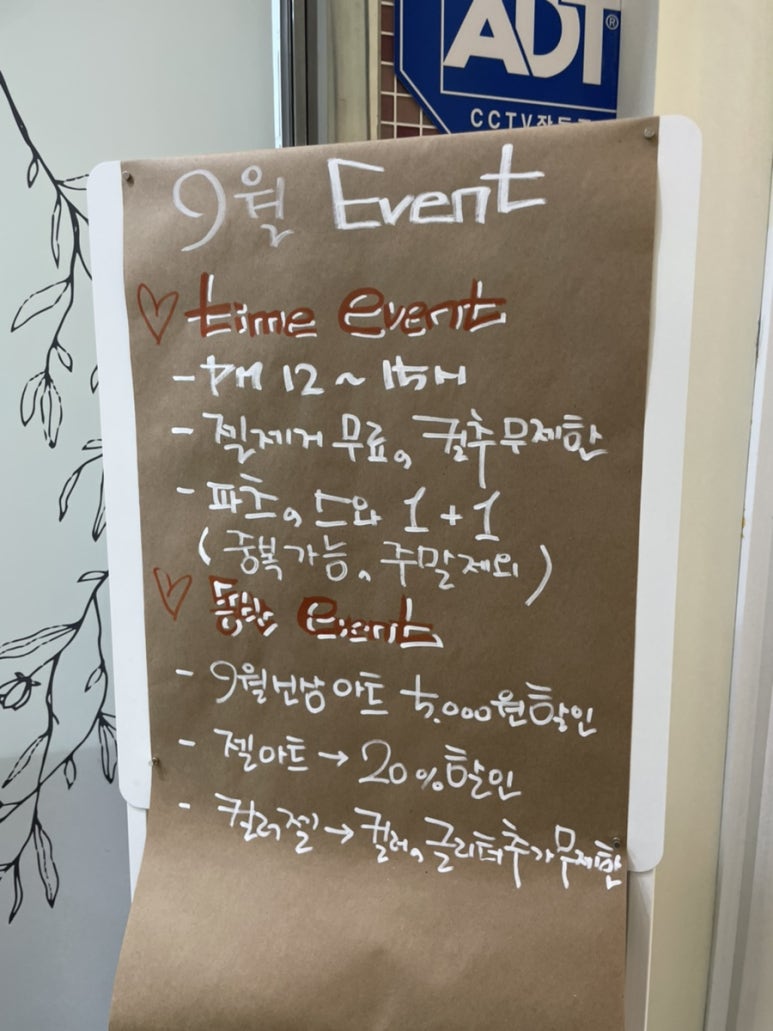 ADT®
CCTV작동중
9월 Event
♡ time event
- PM 12 ~ 15H
- 젤제거 무료, 컬추무제한
- 파츠, 드와 1+1
(중복가능, 주말제외)
♡ 동반 event
- 9월선상아트 5,000원할인
- 젤아트 → 20%할인
- 컬러젤 → 컬러, 글리터추가무제한